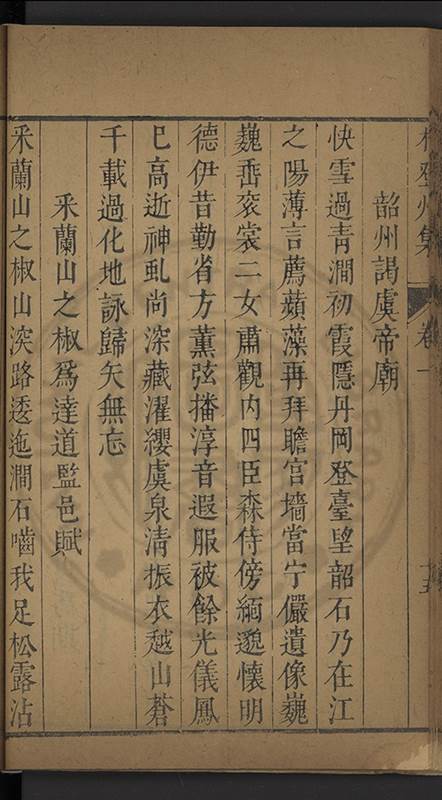 林登州集 卷一 十五
韶州謁虞帝廟
快雪過青澗初霞隱丹岡登臺望韶石乃在江
之陽薄言薦蘋藻再拜瞻宮墻當宁儼遺像巍
巍垂衮裳二女肅觀内四臣森侍傍緬邈懷明
德伊昔勤省方薫弦播淳音遐服被餘光儀鳳
巳高逝神虬尚深藏濯纓虞泉清振衣越山蒼
千載過化地詠歸矢無忘
采蘭山之椒爲達道監邑賦
采蘭山之椒山深路逶迤澗石嚙我足松露沾